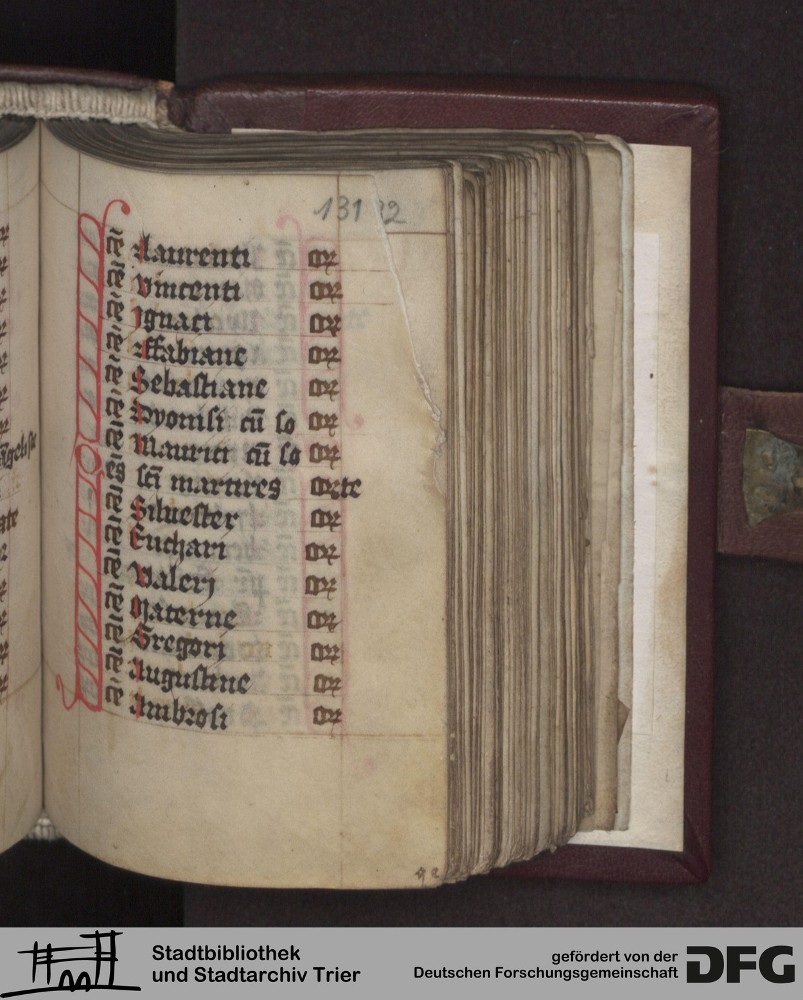 131 92
S ce laurenti or
S ce vincenti or
S ce Ignaci or
S ce ffabiane or
S ce Sebastiane or
S ce dyonisi cū so or
S ce Maurici cū so or
Oēs scī martires orate
S ce Siluester or
S ce Euchari or
S ce Valerj or
S ce Materne or
S ce Gregori or
S ce Augustine or
S ce Ambrosi or
Stadtbibliothek
und Stadtarchiv Trier
gefördert von der
Deutschen Forschungsgemeinschaft
DFG